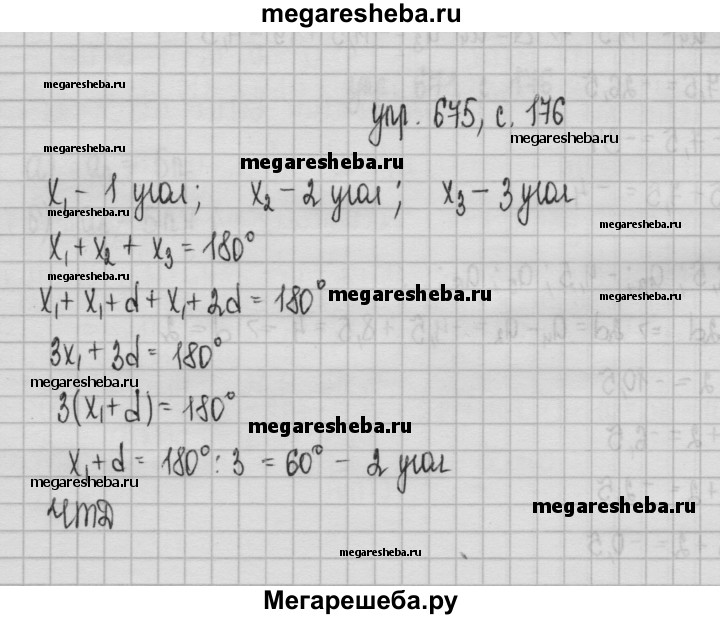 megaresheba.ru
megaresheba.ru
упр. 675, с. 176
megaresheba.ru
megaresheba.ru
megaresheba.ru
x₁ – 1 угол; x₂ – 2 угол; x₃ – 3 угол
megaresheba.ru
megaresheba.ru
x₁ + x₂ + x₃ = 180°
x₁ + x₁ + d + x₁ + 2d = 180°
megaresheba.ru
megaresheba.ru
3x₁ + 3d = 180°
megaresheba.ru
3(x₁ + d) = 180°
megaresheba.ru
x₁ + d = 180° : 3 = 60° – 2 угол
megaresheba.ru
ЧТД
megaresheba.ru
megaresheba.ru
Мегарешеба.ру